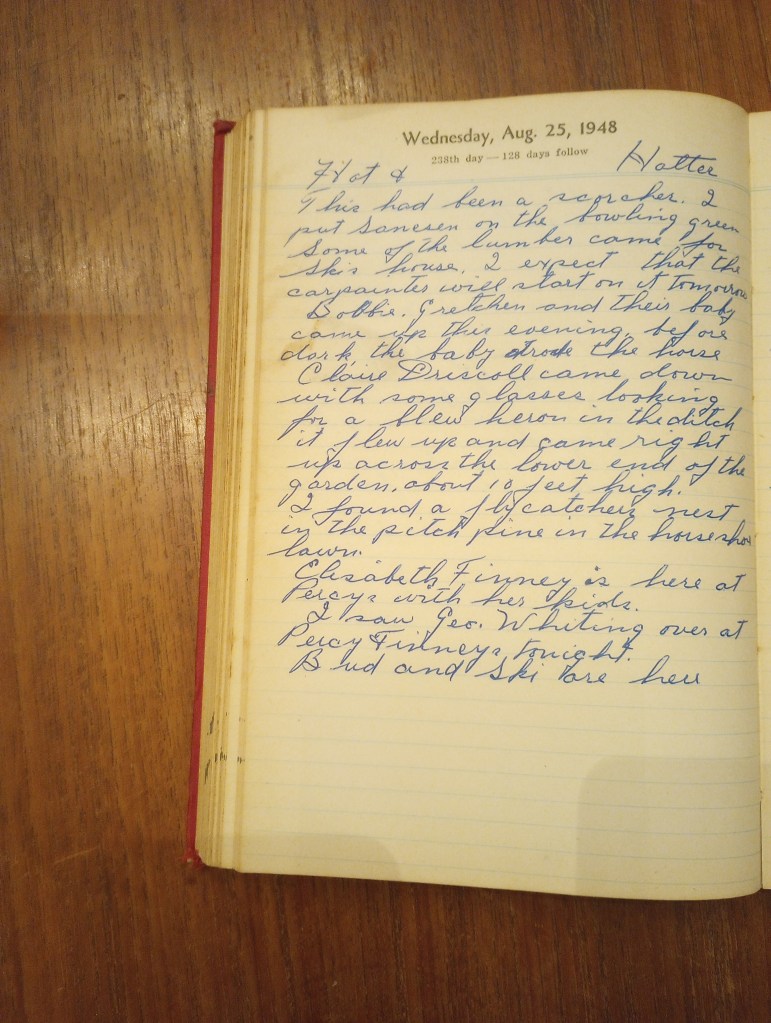 Wednesday, Aug. 25, 1948
238th day — 128 days follow
Hot & Hotter
This had been a scorcher. I
put Sanesen on the bowling green
Some of the lumber came for
Skis house. I expect that the
carpainter will start on it tomorrow
Bobbie. Gretchen and their baby
came up this evening, before
dark, the baby strode the horse
Claire Driscoll came down
with some glasses looking
for a blew heron in the ditch
it flew up and came right
up across the lower end of the
garden. about 10 feet high.
I found a flycatchers nest
in the pitch pine in the horseshoe
lawn.
Elisabeth Finney is here at
Percys with her kids.
I saw Geo. Whiting over at
Percy Finneys tonight.
Bud and Ski are here